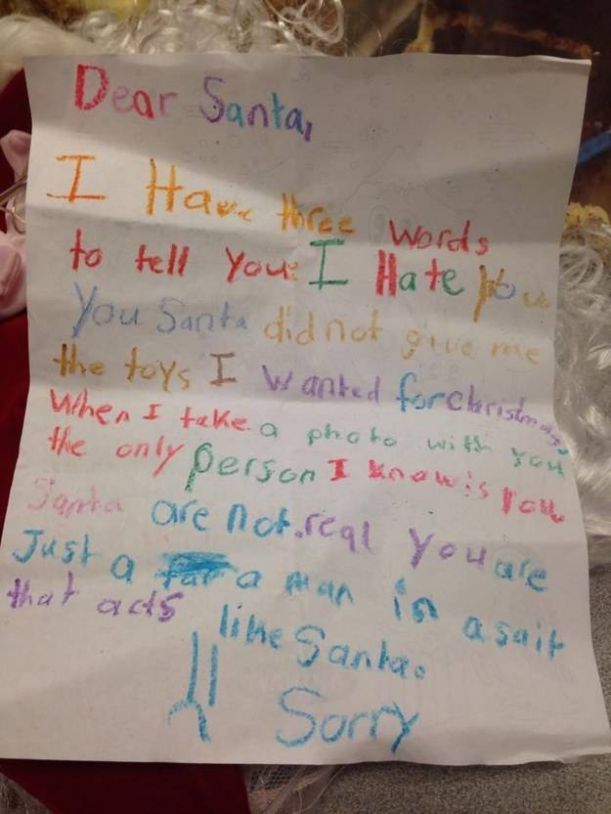 Dear Santa,
I Have three words
to tell you: I Hate you
You Santa did not give me
the toys I wanted for christmas
When I take a photo with you
the only person I know is you
Santa are not. real you are
Just a a man in a sait
that acts like Santa.
Sorry